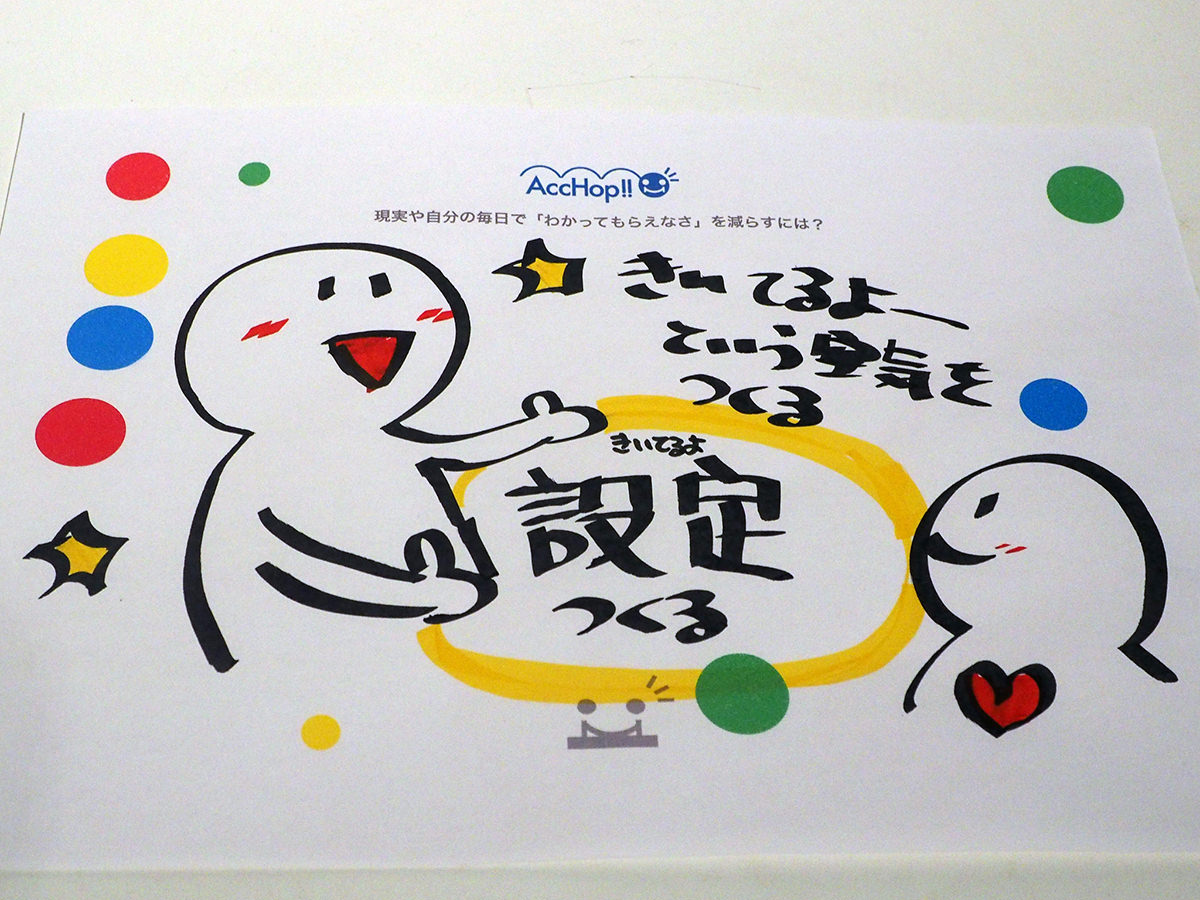 AccHop!!
現実や自分の毎日で「わかってもらえなさ」を減らすには？
きいてるよー
という空気を
つくる
きいてるよ
設定
つくる